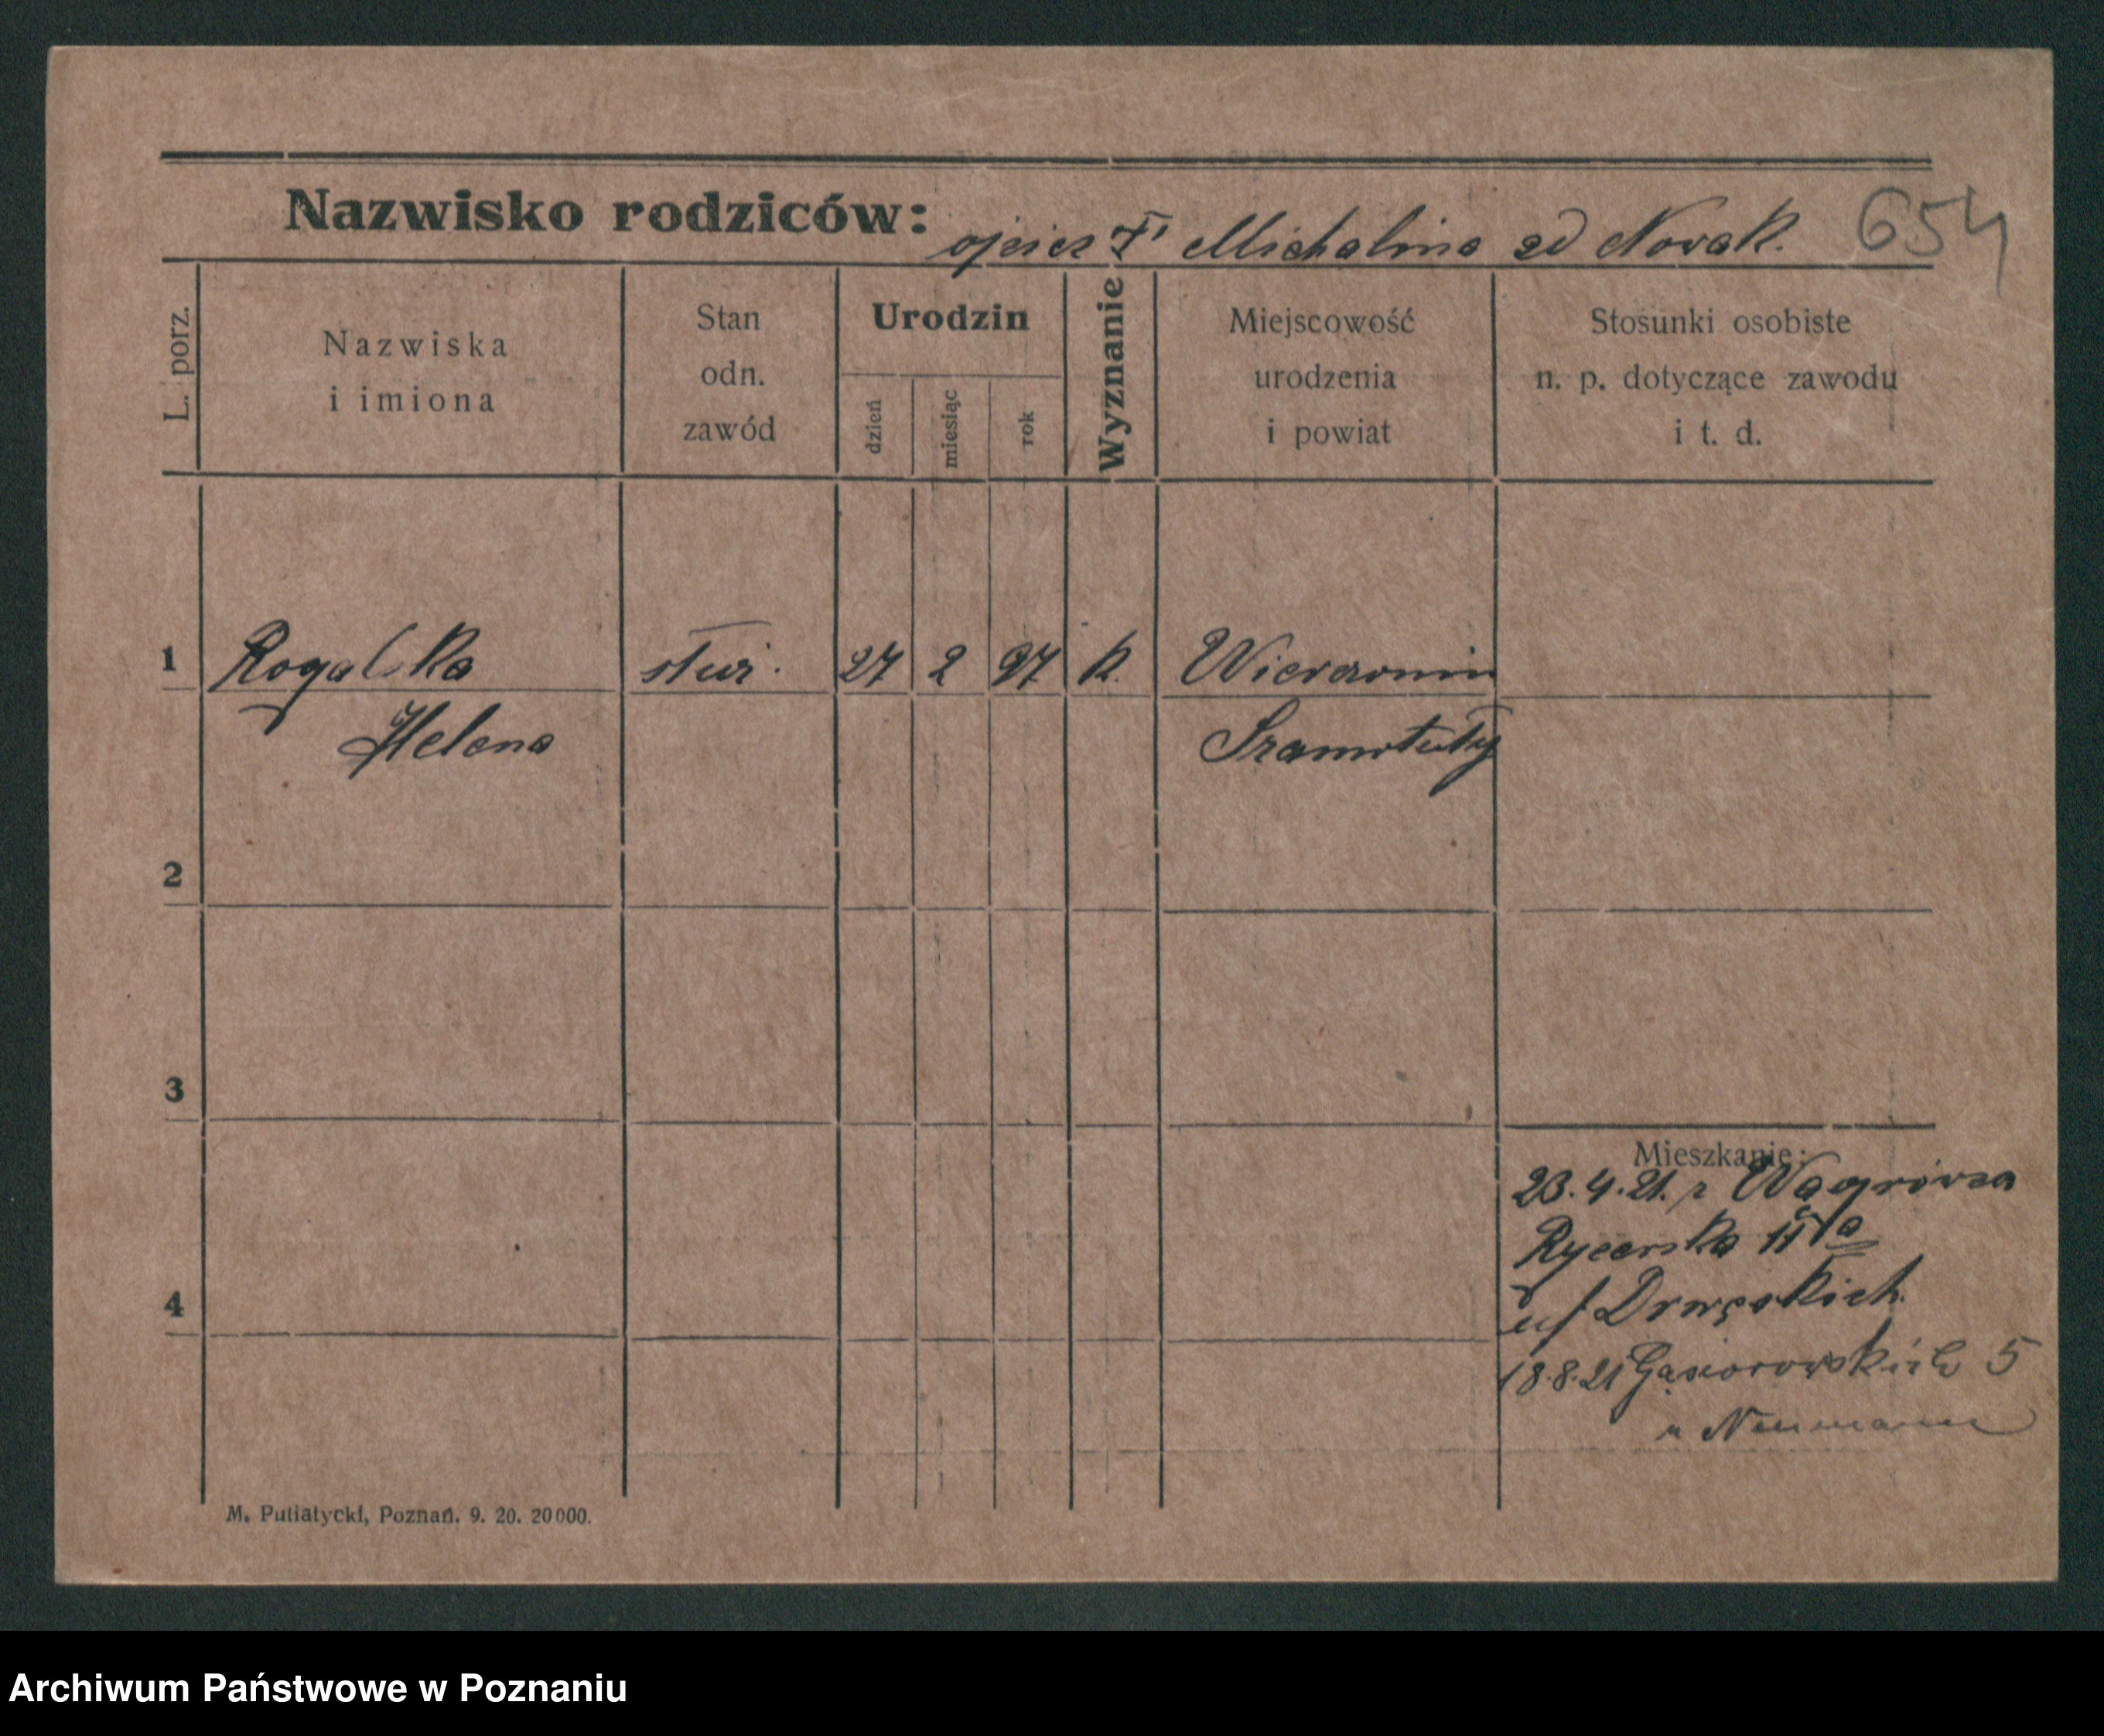 Nazwisko rodziców: ojciec † Michalina zd Nowak. 654
L. porz.
Nazwiska
i imiona
Stan
odn.
zawód
Urodzin
dzień
miesiąc
rok
Wyznanie
Miejscowość
urodzenia
i powiat
Stosunki osobiste
n. p. dotyczące zawodu
i t. d.
1 Rogalska służ. 27 2 97 k.
Helena Szamotuły
2
3
Mieszkanie:
23.4.21. z Wągrówca
Rycerska 11a
4
u/ Drwęskich
18.8.21 Gąsiorowskich 5
u Neumann
M. Putiatycki, Poznań. 9. 20. 20000.
Archiwum Państwowe w Poznaniu